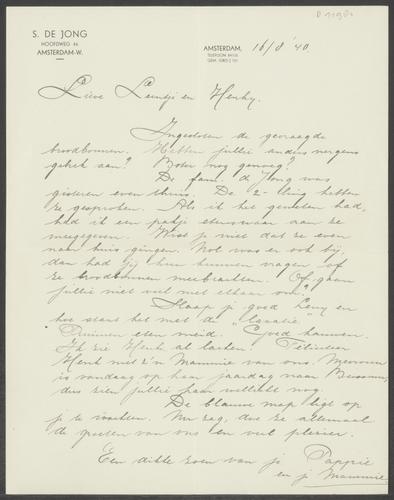 S. DE JONG
HOOFDWEG 46
AMSTERDAM-W.
AMSTERDAM, 16/8 '40
Lieve Leentje en Henky.
Ingesloten de gevraagde
broodbonnen. Hebben jullie anders nergens
gebrek aan? Boter nog genoeg?
De fam. de Jong was
gisteren even thuis. De 2-ling hebben
ze gesproken. Als ik het geweten had,
had ik een pakje etenswaar aan ze
meegegeven. Wist je niet dat ze even
naar huis gingen. Nol was er ook bij,
dan had jij hun kunnen vragen of
ze broodbonnen meebrachten. Of gaan
jullie niet veel met elkaar om?
Slaap je goed Leny en
hoe staat het met de
Pruimen eten meid. Goed kauwen.
Ik zie Henk al lachen. Feliciteer
Henk met z'n Mammie van ons. Mevrouw
is vandaag op haar jaardag naar Bussum,
dus zien jullie haar wellicht nog.
De blauwe map ligt op
je te wachten. Nu zeg, dus ze allemaal
de groeten van ons en veel plezier.
Een dikke zoen van je Pappie
en je Mammie